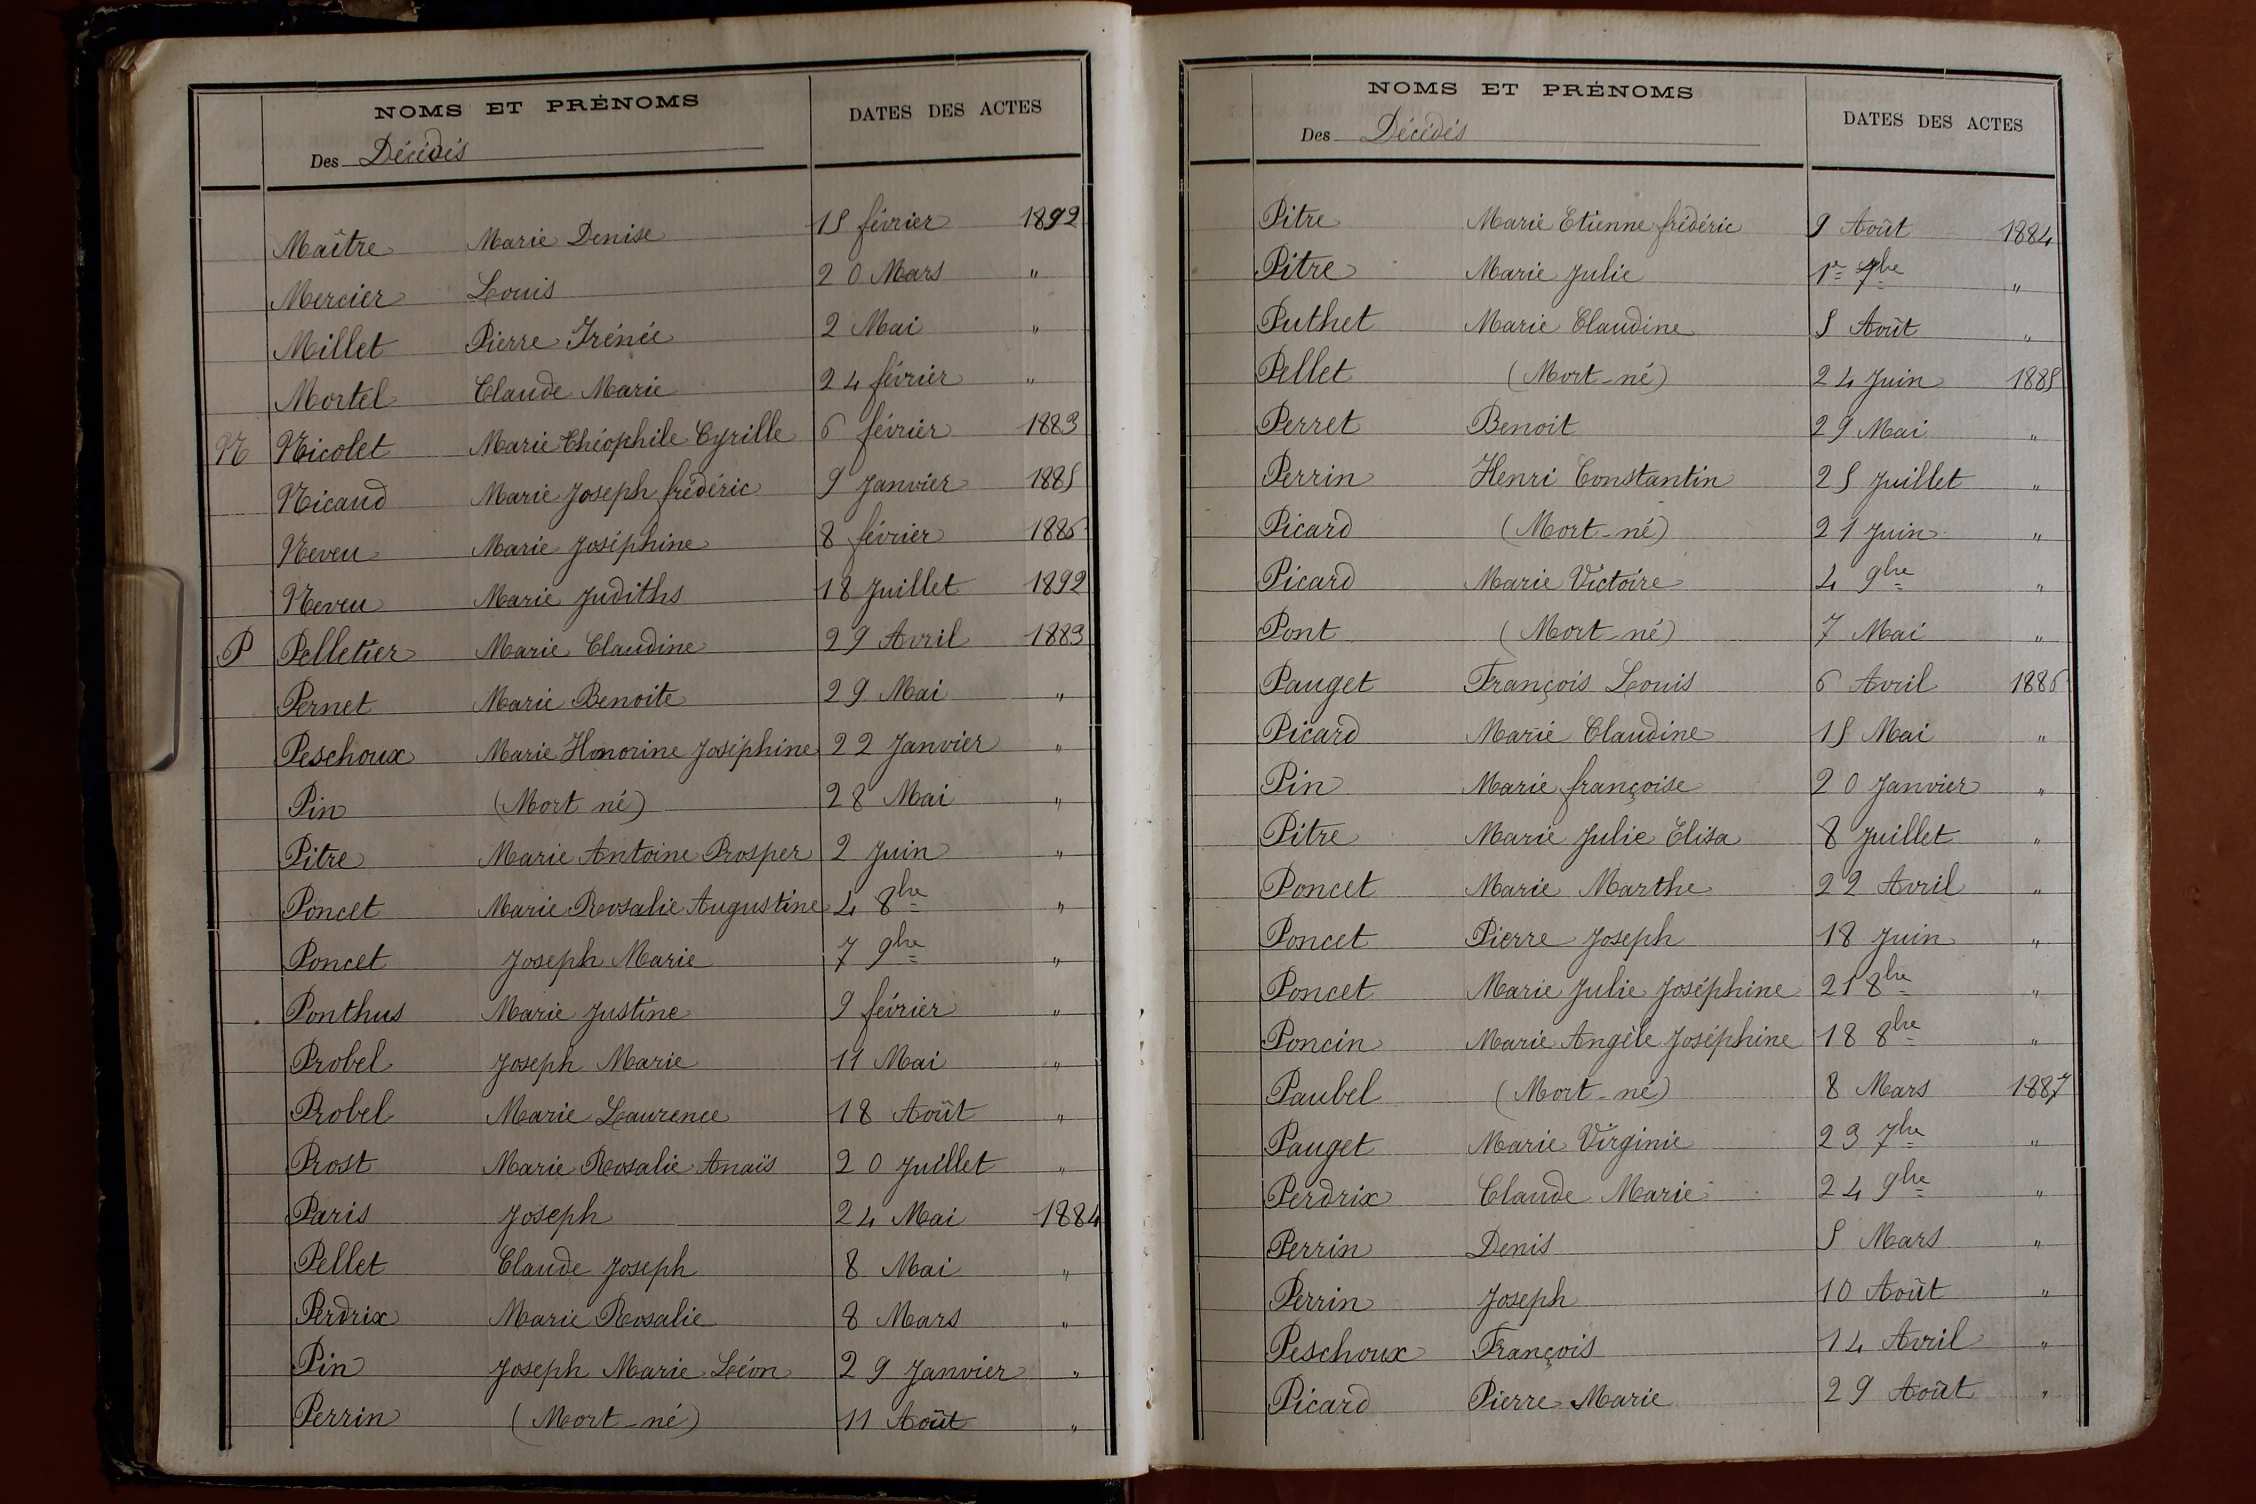 NOMS ET PRÉNOMS DATES DES ACTES
Des Décédés
Maître Marie Denise 15 février 1892
Mercier Louis 20 Mars "
Millet Pierre Irénée 2 Mai "
Mortel Claude Marie 24 février "
N Nicolet Marie Théophile Cyrille 6 février 1883
Nicaud Marie Joseph frédéric 9 Janvier 1885
Neveu Marie Joséphine 8 février 1886
Neveu Marie Judiths 18 Juillet 1892
P Pelletier Marie Claudine 29 Avril 1883
Pernet Marie Benoite 29 Mai "
Peschoux Marie Honorine Joséphine 22 Janvier "
Pin (Mort né) 28 Mai "
Pitre Marie Antoine Prosper 2 Juin "
Poncet Marie Rosalie Augustine 4 8bre "
Poncet Joseph Marie 7 9bre "
Ponthus Marie Justine 9 février "
Probel Joseph Marie 11 Mai "
Probel Marie Laurence 18 Août "
Prost Marie Rosalie Anaïs 20 Juillet "
Paris Joseph 24 Mai 1884
Pellet Claude Joseph 8 Mai "
Perdrix Marie Rosalie 8 Mars "
Pin Joseph Marie Léon 29 Janvier "
Perrin (Mort-né) 11 Août "
NOMS ET PRÉNOMS DATES DES ACTES
Des Décédés
Pitre Marie Etienne frédéric 9 Août 1884
Pitre Marie Julie 1er 7bre "
Puthet Marie Claudine 5 Août "
Pellet (Mort-né) 24 Juin 1885
Perret Benoit 29 Mai "
Perrin Henri Constantin 25 Juillet "
Picard (Mort-né) 21 Juin "
Picard Marie Victoire 4 9bre "
Pont (Mort-né) 7 Mai "
Pauget François Louis 6 Avril 1886
Picard Marie Claudine 15 Mai "
Pin Marie françoise 20 Janvier "
Pitre Marie Julie Elisa 8 Juillet "
Poncet Marie Marthe 22 Avril "
Poncet Pierre Joseph 18 Juin "
Poncet Marie Julie Joséphine 21 8bre "
Poncin Marie Angèle Joséphine 18 8bre "
Paubel (Mort-né) 8 Mars 1887
Pauget Marie Virginie 23 7bre "
Perdrix Claude Marie 24 9bre "
Perrin Denis 5 Mars "
Perrin Joseph 10 Août "
Peschoux François 14 Avril "
Picard Pierre Marie 29 Août "